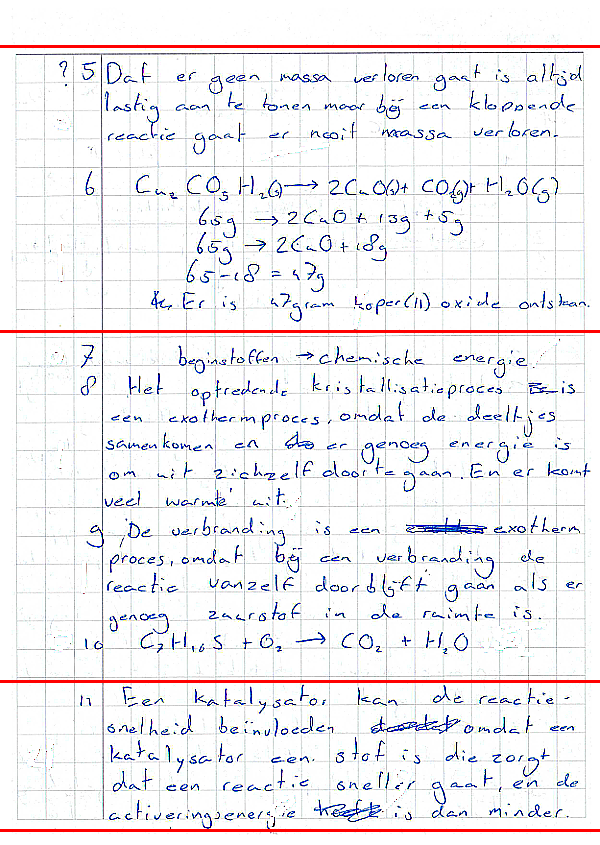 ? 5 Dat er geen massa verloren gaat is altijd
lastig aan te tonen maar bij een kloppende
reactie gaat er nooit massa verloren.
6 Cu₂ CO₅ H₂(s) → 2CuO(s) + CO₂(g) + H₂O(g)
65g → 2CuO + 13g + 5g
65g → 2CuO + 18g
65-18 = 47g
Er is 47gram koper(II) oxide ontstaan.
7 beginstoffen → chemische energie.
8 Het optredende kristallisatieproces is
een exothermproces, omdat de deeltjes
samenkomen en er genoeg energie is
om uit zichzelf door te gaan. En er komt
veel warmte uit.
9 De verbranding is een exotherm
proces, omdat bij een verbranding de
reactie vanzelf door blijft gaan als er
genoeg zuurstof in de ruimte is.
10 C₇H₁₆S + O₂ → CO₂ + H₂O
11 Een katalysator kan de reactie-
snelheid beïnvloeden omdat een
katalysator een stof is die zorgt
dat een reactie sneller gaat, en de
activeringsenergie is dan minder.